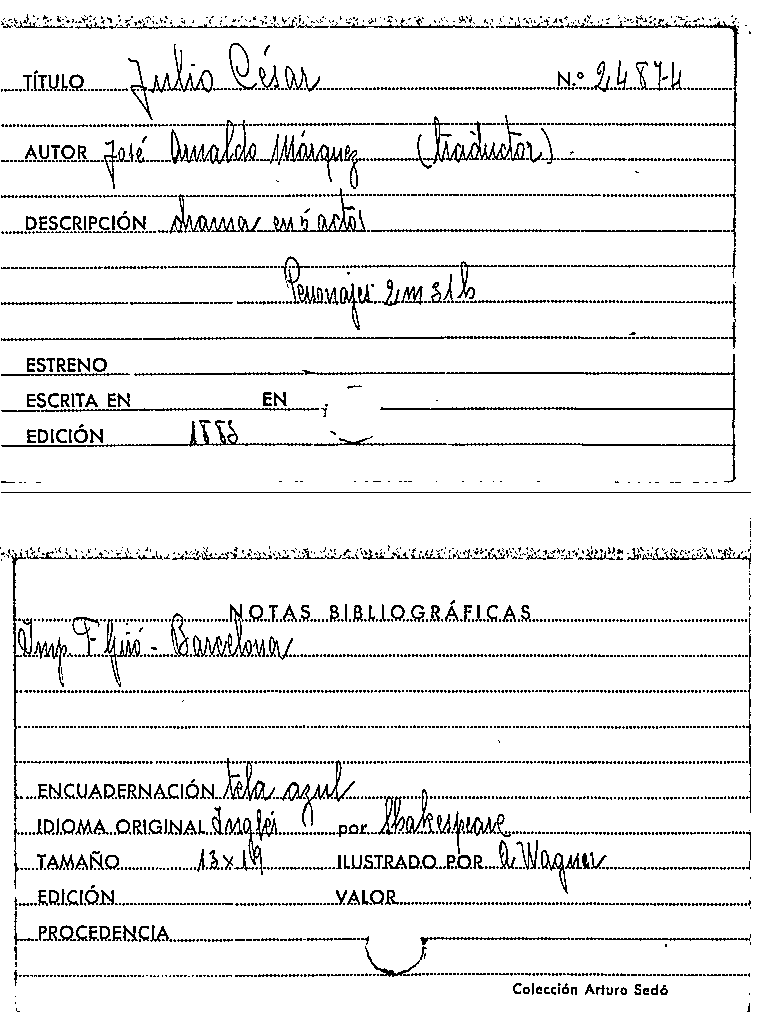 TÍTULO Julio César N.º 24874
AUTOR José Arnaldo Márquez (traductor).
DESCRIPCIÓN drama en 5 actos
Personajes 2 m 31 h
ESTRENO
ESCRITA EN EN
EDICIÓN
NOTAS BIBLIOGRÁFICAS
Imp F Giró - Barcelona
ENCUADERNACIÓN tela azul
IDIOMA ORIGINAL Inglés por Shakespeare
TAMAÑO 13 x 19 ILUSTRADO POR A Wagner
EDICIÓN VALOR
PROCEDENCIA
Colección Arturo Sedó